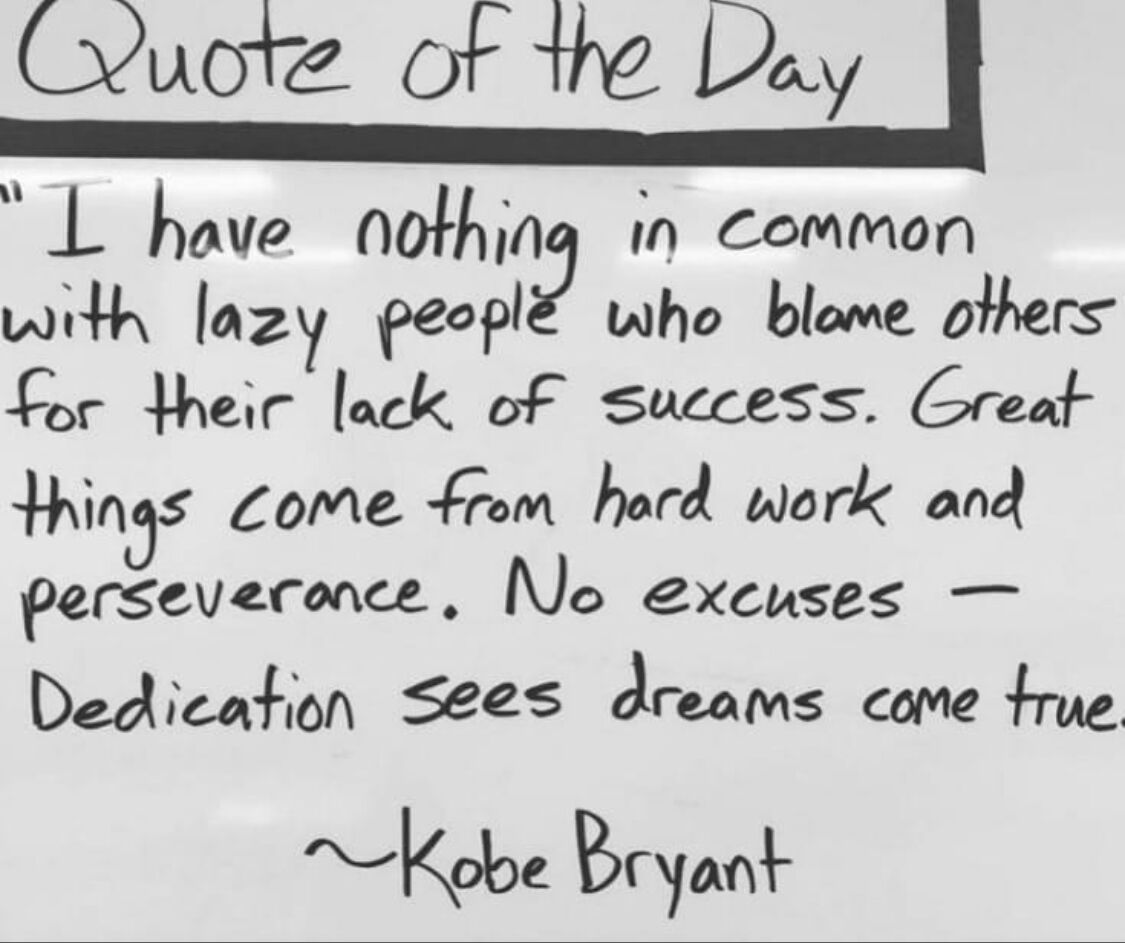 Quote of the Day
"I have nothing in common
with lazy people who blame others
for their lack of success. Great
things come from hard work and
perseverance. No excuses —
Dedication sees dreams come true.
~Kobe Bryant